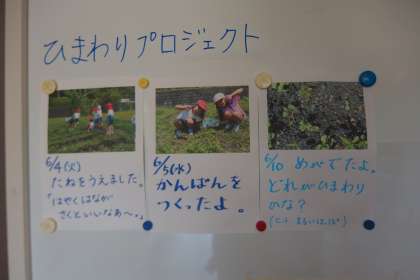 ひまわりプロジェクト
6/4(火)
たねをうえました。
「はやくはなが
さくといいなあ〜。」
6/5(水)
かんばんを
つくったよ。
6/10 めがでたよ。
どれがひまわり
かな?